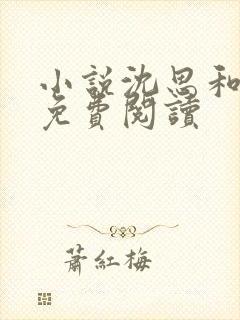 小說沈思和
免費閱讀
蕭紅梅